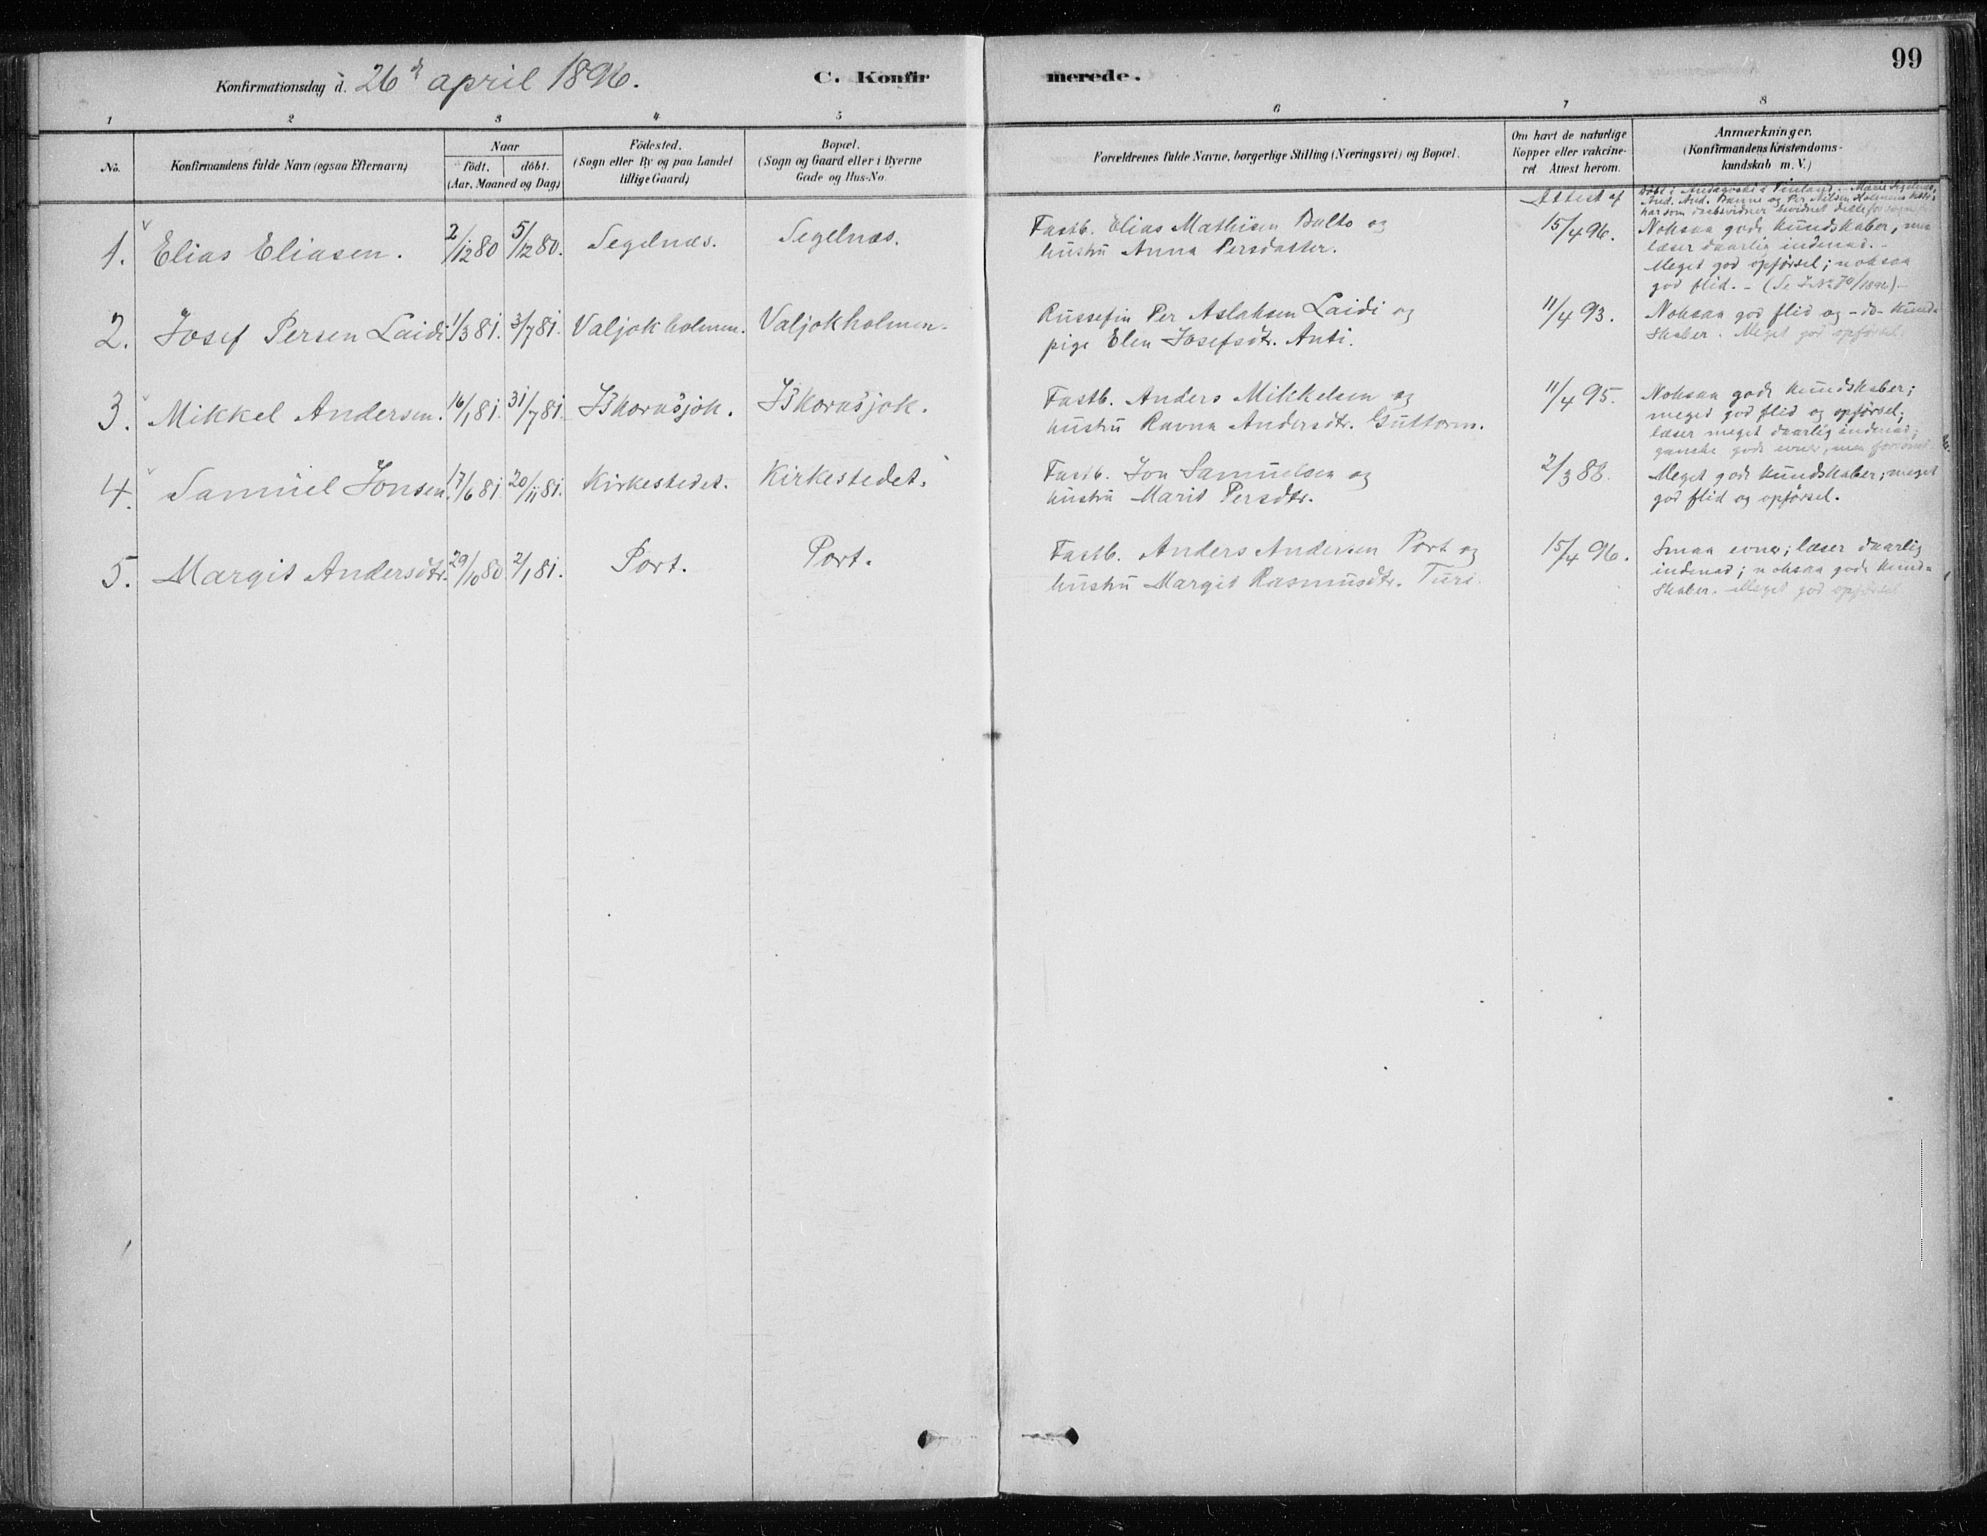 99
Konfirmationsdag d. 26d april 1896.
C. Konfirmerede.
1 2 3 4 5 6 7 8
No.
Konfirmandens fulde Navn (ogsaa Efternavn)
Naar
födt, döbt.
(Aar, Maaned og Dag)
Födested.
(Sogn eller By og paa Landet
tillige Gaard)
Bopæl.
(Sogn og Gaard eller i Byerne
Gade og Hus-No.
Forældrenes fulde Navne, borgerlige Stilling (Næringsvei) og Bopæl.
Om havt de naturlige
Kopper eller vakcine-
ret. Attest herom.
Anmærkninger.
(Konfirmandens Kristendoms-
kundskab m. V.)
Attest af
1. Elias Eliasen. 2/12 80 5/12 80. Segelnæs. Segelnæs.
Fastb. Elias Mathisen Balto og
hustru Anna Persdatter.
15/4 96.
Døbt i Finland. Marie Segelnæs,
And. And. Banne og Per Nilsen
har som daabsvidner bevidnet dette
Noksaa gode kundskaber, men
læser daarlig indenad. -
Meget god opførsel; noksaa
god flid. -
2. Josef Persen Laidi 1/3 81. 3/7 81. Valjokholmen. Valjokholmen.
Russefin Per Aslaksen Laidi og
pige Elen Josefsdtr. Anti.
11/4 93.
Noksaa god flid og -do- kund-
skaber. Meget god opførsel.
3. Mikkel Andersen. 16/1 81. 31/7 81. Iskorasjok. Iskorasjok.
Fastb. Anders Mikkelsen og
hustru Ravna Andersdtr. Guttorm.
11/4 95.
Noksaa gode kundskaber;
meget god flid og opførsel;
læser meget daarlig indenad;
ganske gode evner, men
4. Samuel Jonsen 17/6 81. 20/11 81. Kirkestedet. Kirkestedet.
Fastb. Jon Samuelsen og
hustru Marit Persdtr.
2/3 88.
Meget gode kundskaber; meget
god flid og opførsel.
5. Margit Andersdtr. 29/10 80 2/1 81. Port. Port.
Fastb. Anders Andersen Port og
hustru Margit Rasmusdtr. Turi.
15/4 96.
Smaa evner; læser daarlig
indenad; noksaa gode kund-
skaber. Meget god opførsel